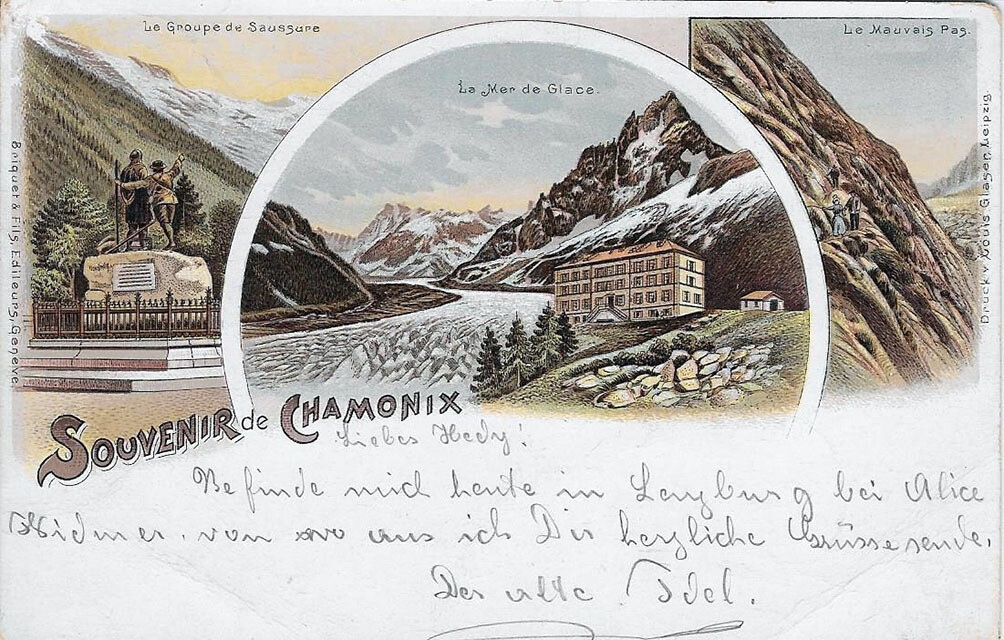 Le Groupe de Saussure
La Mer de Glace.
Le Mauvais Pas.
Briquet & Fils, Editeurs, Genève
Druck v. Louis Glaser, Leipzig.
SOUVENIR de CHAMONIX
Liebes Hedy!
Befinde mich heute in Lenzburg bei Alice
Widmer, von wo aus ich Dir herzliche Grüsse sende.
Der alte